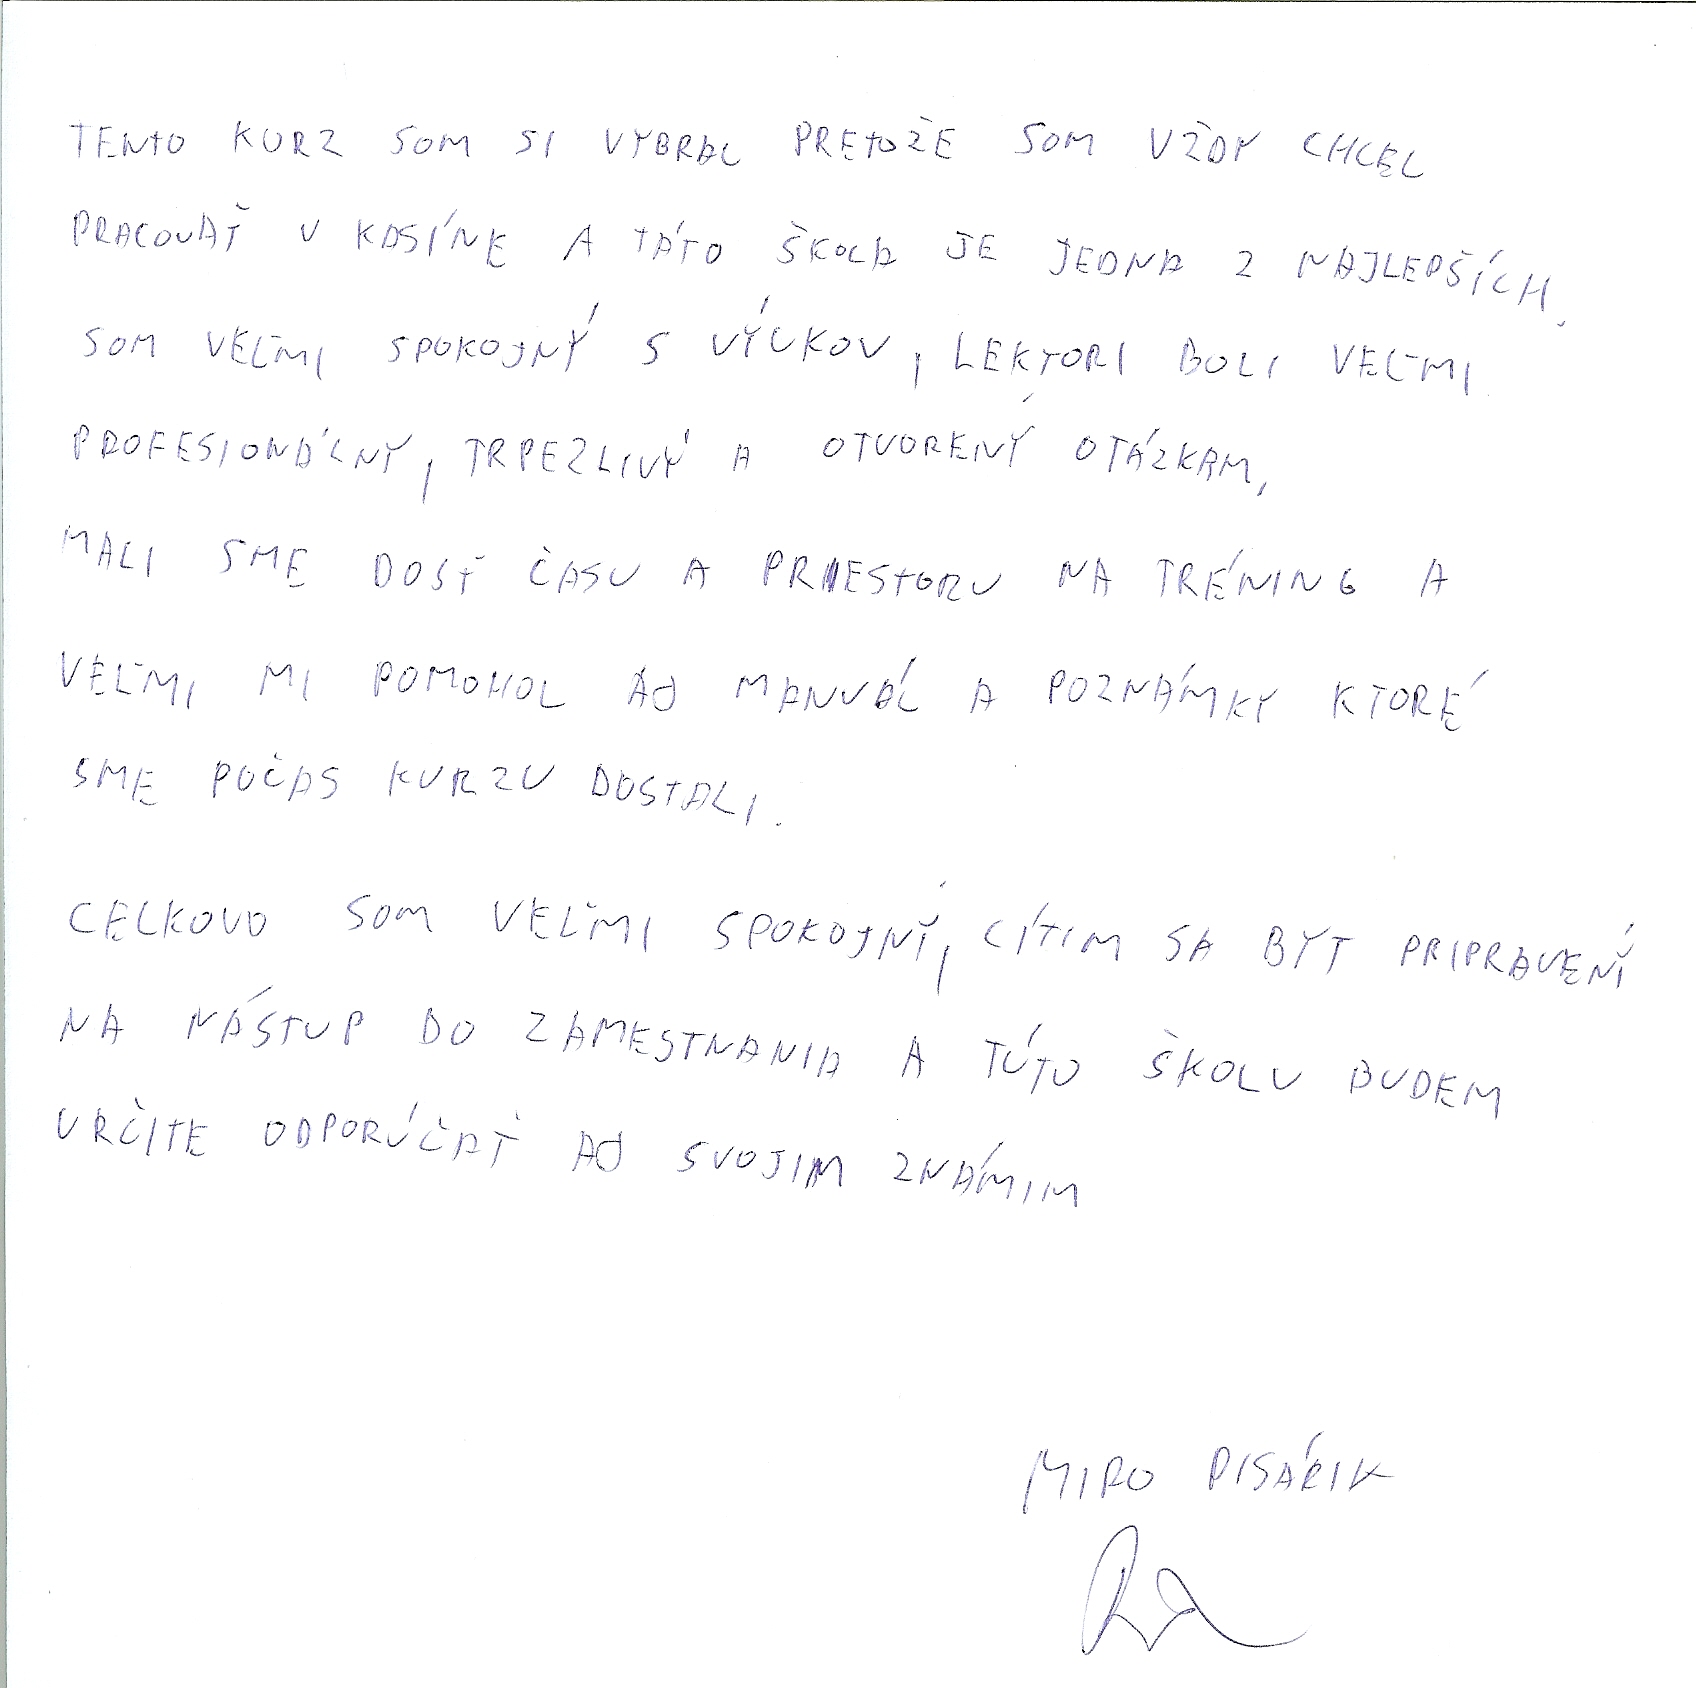 TENTO KURZ SOM SI VYBRAL PRETOŽE SOM VŽDY CHCEL
PRACOVAŤ V KASÍNE A TÁTO ŠKOLA JE JEDNA Z NAJLEPŠÍCH.
SOM VEĽMI SPOKOJNÝ S VÝUKOV, LEKTORI BOLI VEĽMI
PROFESIONÁLNY, TRPEZLIVÝ A OTVORENÝ OTÁZKAM,
MALI SME DOSŤ ČASU A PRIESTORU NA TRÉNING A
VEĽMI MI POMOHOL AJ MANUÁL A POZNÁMKY KTORÉ
SME POČAS KURZU DOSTALI.
CELKOVO SOM VEĽMI SPOKOJNÝ, CÍTIM SA BYT PRIPRAVENÝ
NA NÁSTUP DO ZAMESTNANIA A TÚTO ŠKOLU BUDEM
URČITE ODPORÚČAŤ AJ SVOJIM ZNÁMIM
MIRO PISÁRIK